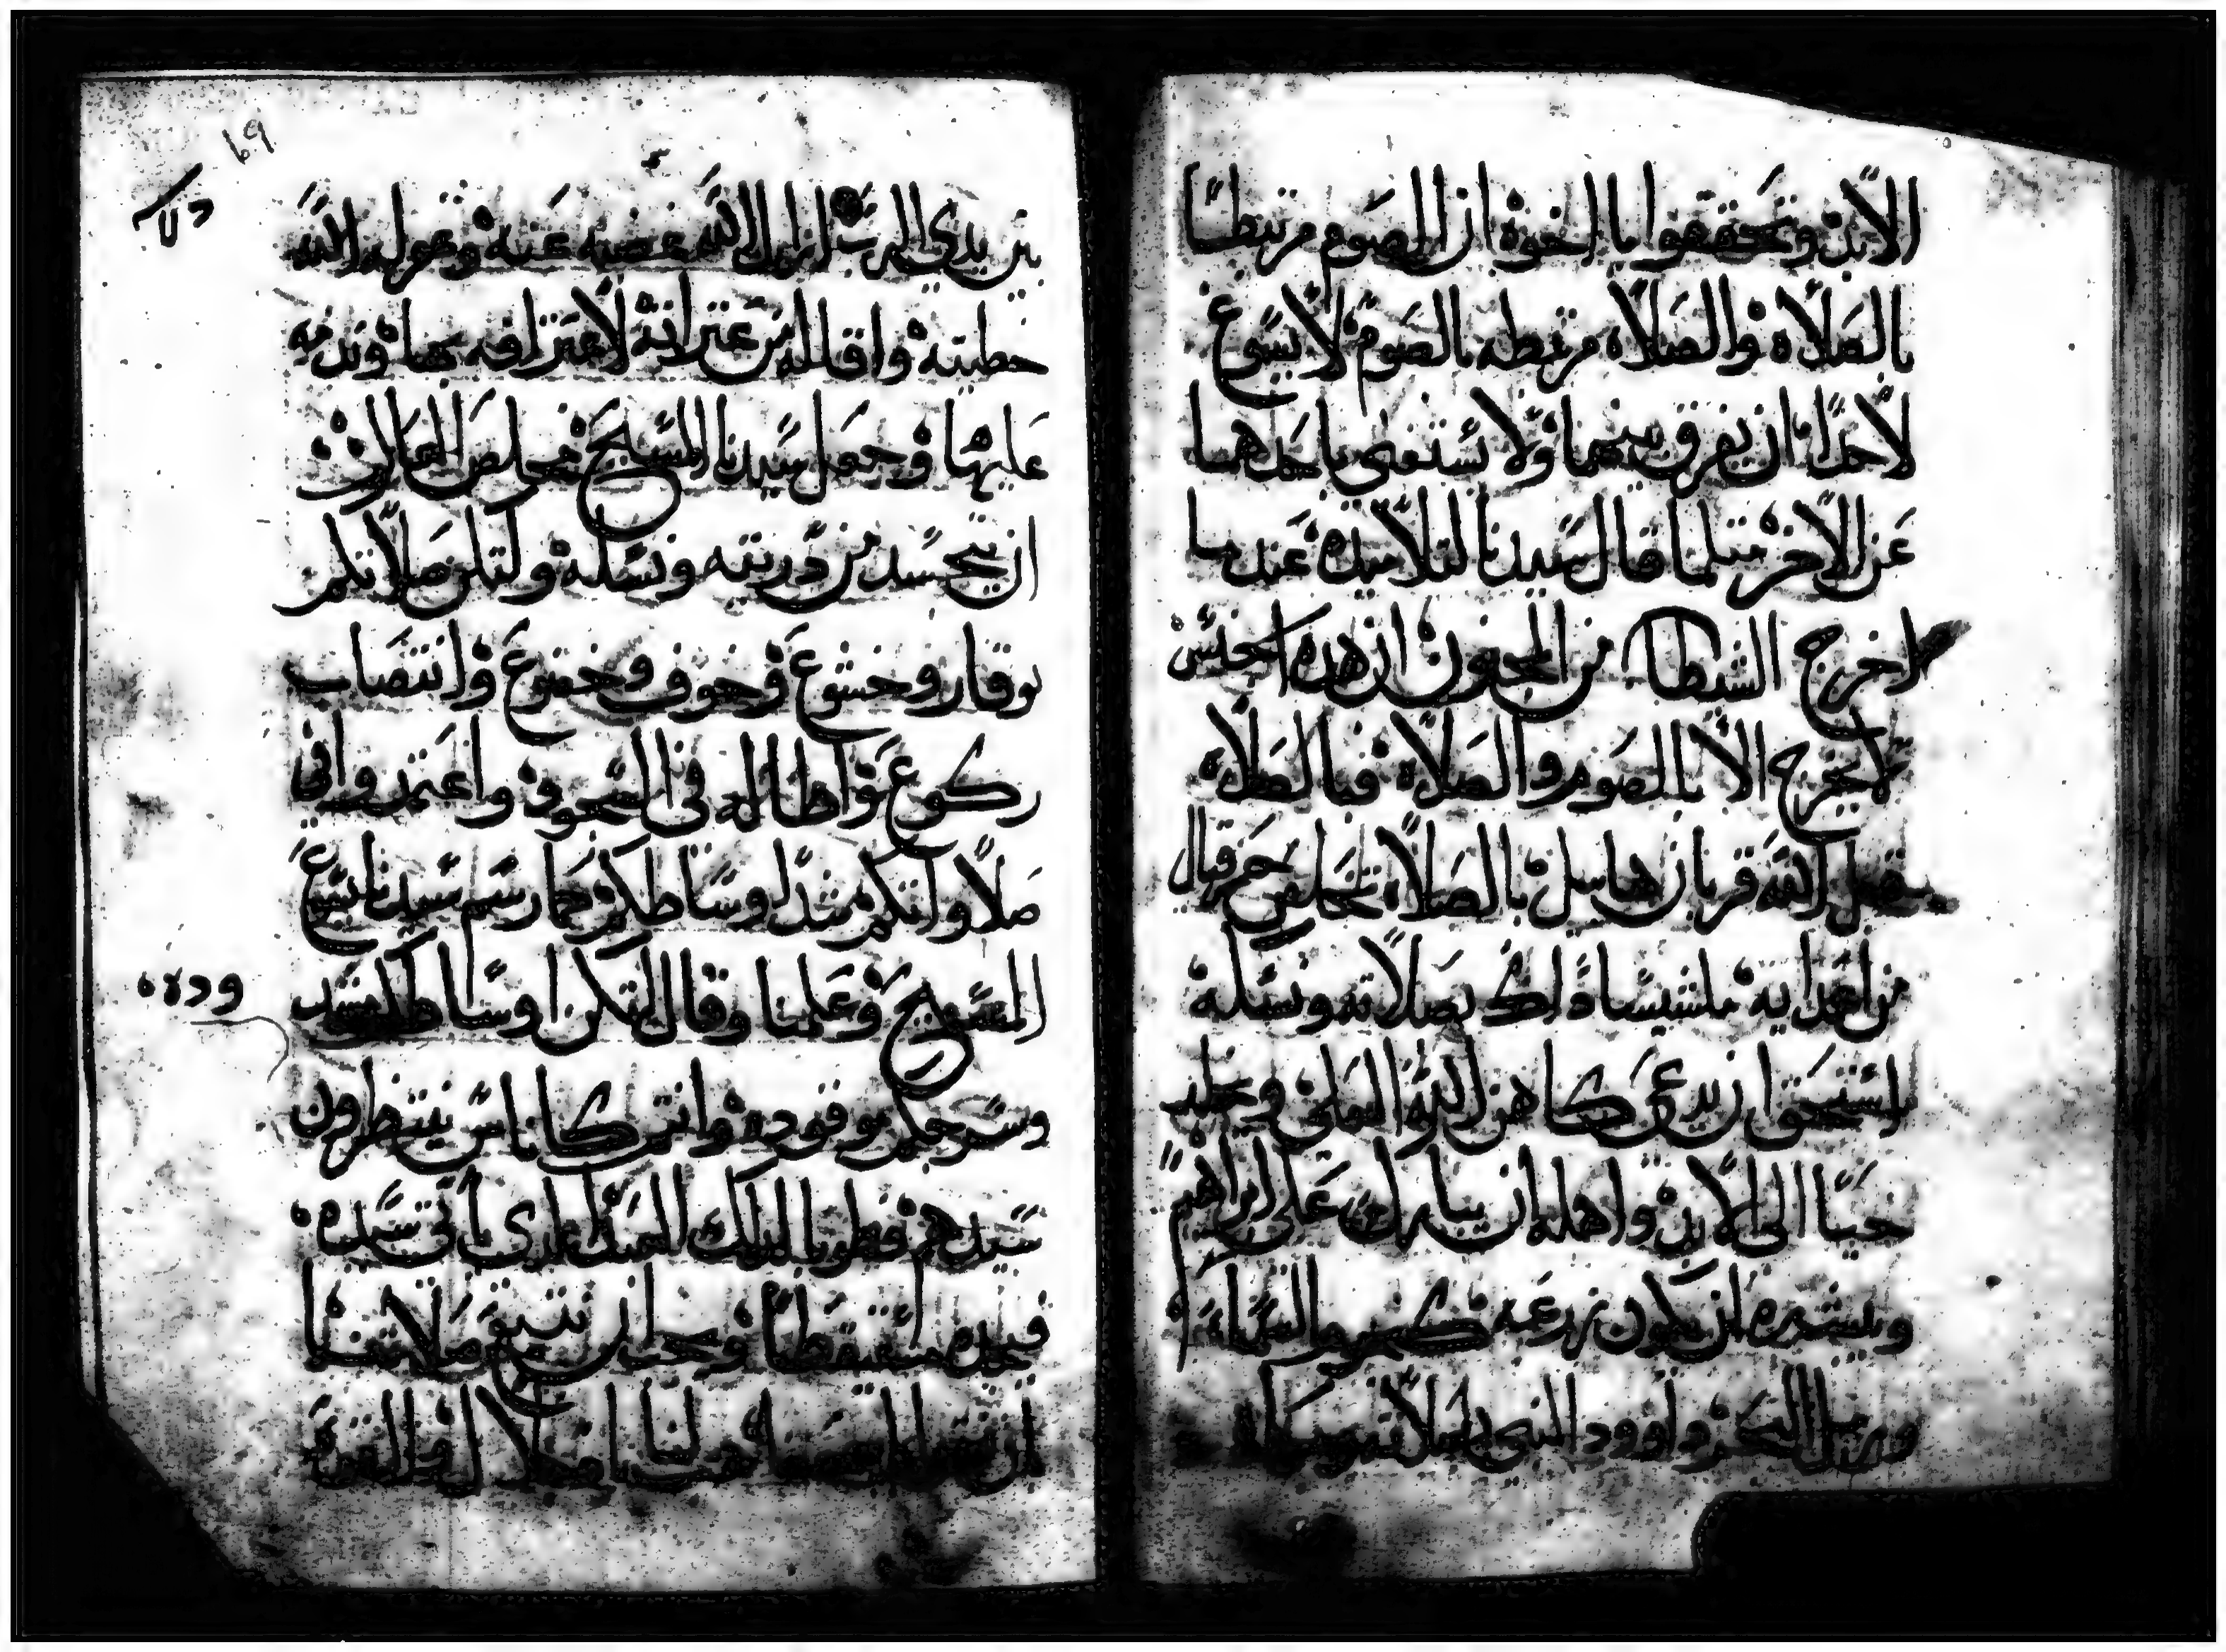 الابد وتحققوا يا اخوة ان الصوم مرتبطا
بالصلاة والصلاة مرتبطه بالصوم لا يسوغ
لاحدا ان يفرق بينهما ولا يستغنى باحدهما
عن الاخر مثلما قال سيدنا لتلاميذه عندما
اخرج الشيطان من المجنون ان هذه الجنس
لا يخرج الا بالصوم والصلاة فبالصلاة
تقبل الله قربان هابيل بالصلاة تخلص
من اعدايه ملشيساداك بصلاته ونسكه
استحق ان يدعى كاهن الله العلى
حيا الى الابد واهله ان يبارك على ابراهيم
ويبشره ان يكون زرعه كنجوم السماء
ورمل البحر داوود النبي بصلاته
69
بين يدي الرب ازال الله غضبه عنه وغفر له الله
خطيته واقاله من عثراته لاعترافه بها وندمه
عليها وجعل سيدنا المسيح مخلص
ان يتجسد من ذريته ونسله ولتكن صلاتكم
بوقار وخشوع وخوف وخضوع وانتصاب
ركوع واطاله في السجود واعتمدوا في
صلاواتكم شد اوساطكم كما رسم سيدنا يسوع
المسيح وعلمنا وقال لتكن اوساطكم مشدوده
وسرجكم موقوده وانتم كاناس ينتظرون
سيدهم فطوبا لذلك العبد الذي ياتي سيده
فيجده مستيقظا ونحن ان نسبق صلاتنا